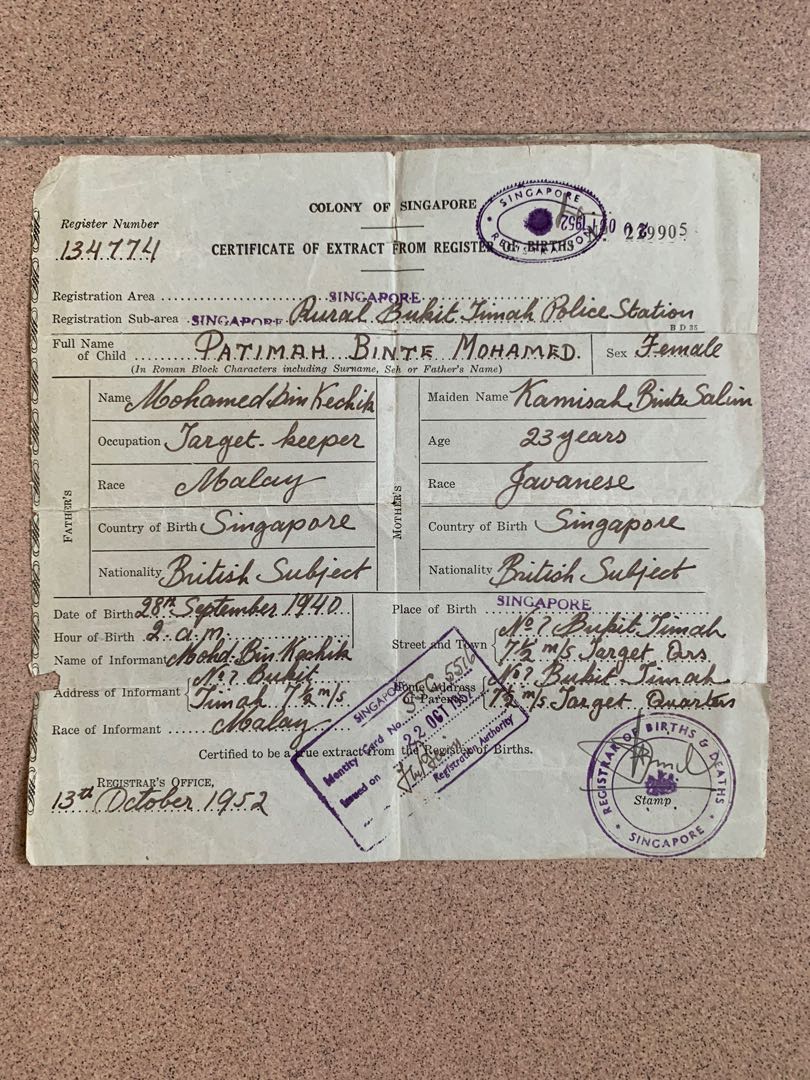 COLONY OF SINGAPORE
SINGAPORE
REGISTRATION
20 OCT 1952
Register Number
134774
CERTIFICATE OF EXTRACT FROM REGISTER OF BIRTHS
No. 229905
Registration Area SINGAPORE
Registration Sub-area SINGAPORE Rural Bukit Timah Police Station
B D 35
Full Name of Child PATIMAH BINTE MOHAMED.
Sex Female
(In Roman Block Characters including Surname, Seh or Father's Name)
FATHER'S
Name Mohamed bin Kechik
Occupation Target-keeper
Race Malay
Country of Birth Singapore
Nationality British Subject
MOTHER'S
Maiden Name Kamisah Binte Salim
Age 23 years
Race Javanese
Country of Birth Singapore
Nationality British Subject
Date of Birth 28th September 1940
Hour of Birth 2 a.m.
Name of Informant Mohd. Bin Kechik
Address of Informant No 7 Bukit
Timah 7½ m/s
Race of Informant Malay
Place of Birth SINGAPORE
Street and Town No 7 Bukit Timah
7½ m/s Target Qrs
Home Address of Parents No 7 Bukit Timah
7½ m/s Target Quarters
Certified to be a true extract from the Register of Births.
SINGAPORE
Identity Card No.
Issued on 22 OCT 195
Registration Authority
REGISTRAR'S OFFICE,
13th October 1952
REGISTRAR OF BIRTHS & DEATHS
SINGAPORE
Stamp